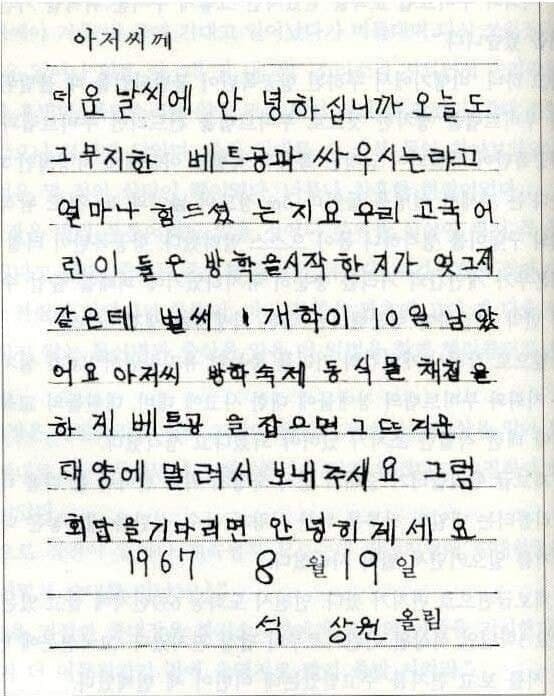 아저씨께
더운 날씨에 안녕하십니까 오늘도
그무지한 베트공과 싸우시는라고
얼마나 힘드셨는지요 우리 고국 어
린이 들은 방학을시작한지가 엊그제
같은데 벌써 개학이 10일 남았
어요 아저씨 방학숙제 동식물 채집을
하게 베트공을 잡으면 그뜨거운
태양에 말려서 보내주세요 그럼
회답을기다리면 안녕히계세요
1967 8월 19일
석 상원 올림